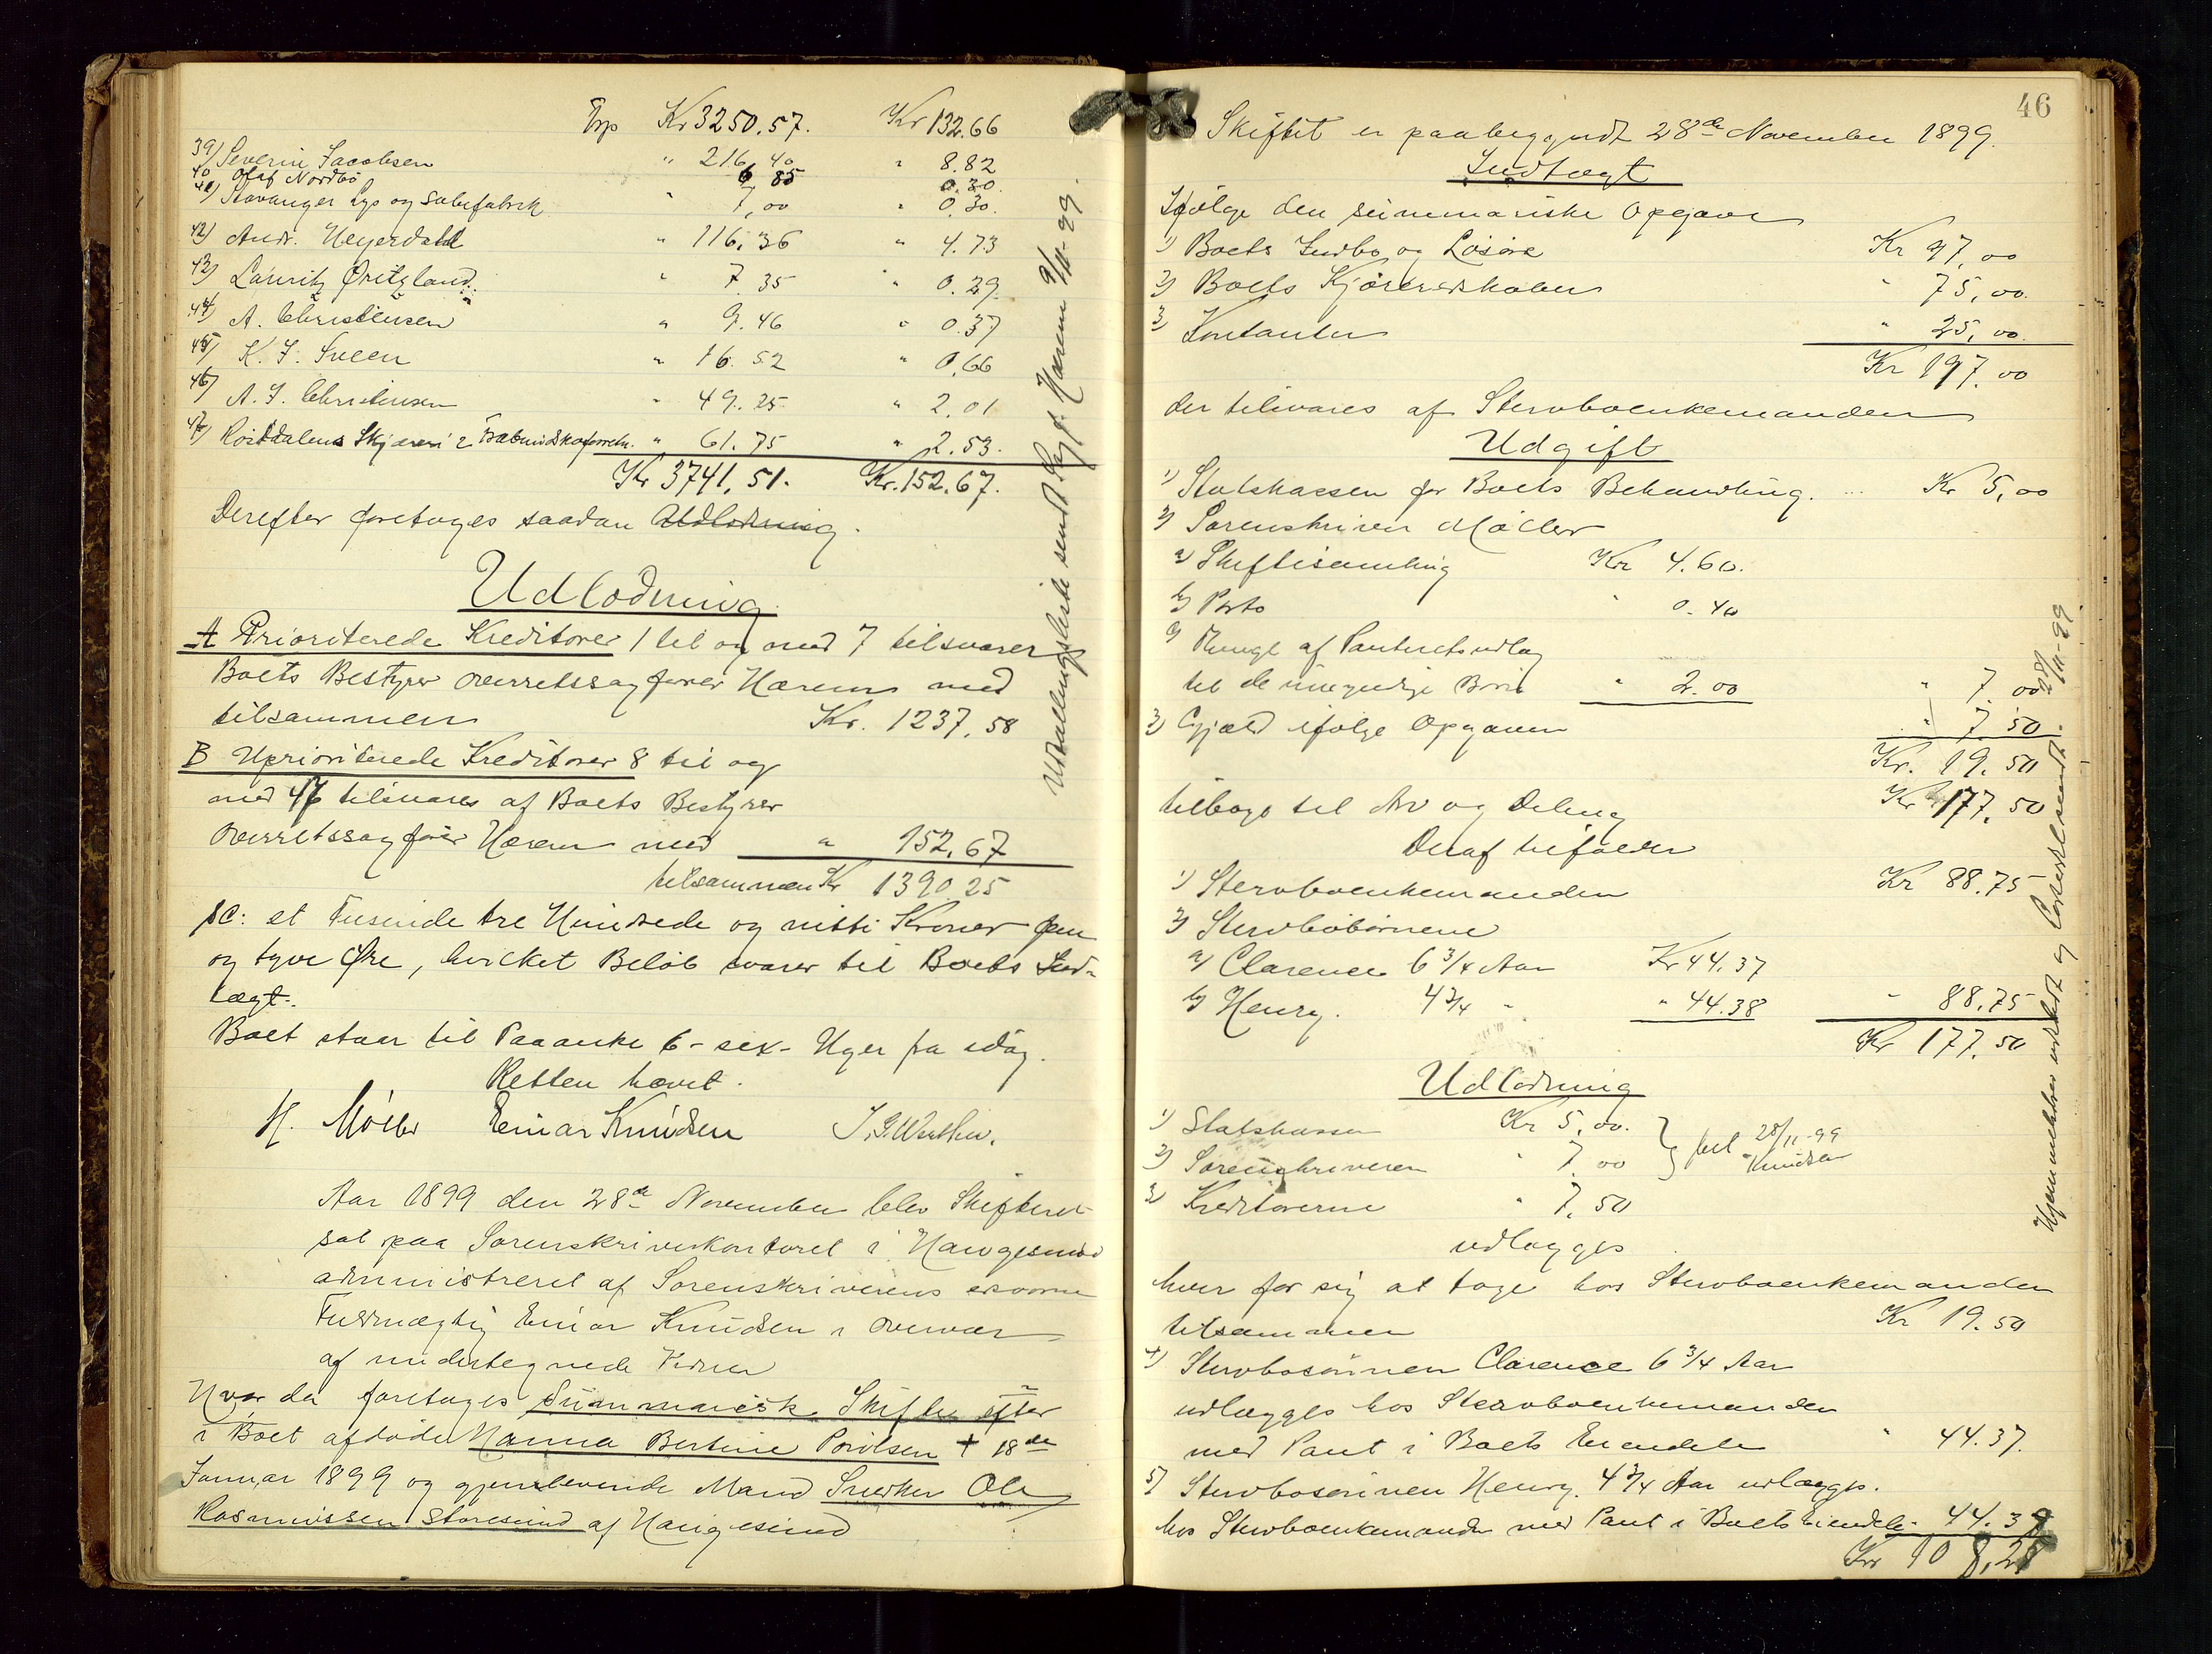 Trp Kr 3250.57. Kr 132.66
39) Severin Jacobsen " 216,40 " 8.82
40 Olaf Nordbö 6 85 0.30
41) Stavanger Lys og Sæbefabrik " 7,00 " 0.30.
42) Andr. Heyerdahl " 116,36 " 4.73
43) Lauritz Øritzland " 7 35 " 0.29
44) A. Christensen " 9.46 " 0.37
45) K. J. Sveen " 16.52 " 0,66
46) A. J. Christensen " 49.25 " 2.01
47) " 61.75 " 2.53.
Kr 3741,51. Kr. 152.67.
Derefter foretages saadan Udlodning.
Udlodning.
A Prioriterede Kreditorer 1 til og med 7 tilsvarer
Boets Bestyrer Overretssagfører Hærem med
tilsammen Kr. 1237,58
B Uprioriterede Kreditorer 8 til og
med 47 tilsvares af Boets Bestyrer
Overretssagfører Hærem med " 152,67
tilsammen Kr 1390 25
sc: et Tusinde tre Hundrede og nitti Kroner fem
og tyve Øre, hvilket Beløb svarer til Boets Ind-
tægt.
Boet staar til Paaanke 6 - sex - Uger fra idag.
Retten hævet.
H. Möller Einar Knudsen
Udtællingsliste sendt Sagf. Hærem 9/11-99.
Aar 1899 den 28de November blev Skifteret
sat paa Sorenskriverkontoret i Haugesund
administreret af Sorenskriverens edsvorne
Fuldmægtig Einar Knudsen i Overvær
af undertegnede Vidner
Hvor da foretages Summarisk Skifte efter
i Boet afdöde Hanna Bertine Povlsen † 18de
Januar 1899 og gjenlevende Mand Snedker Ole
Rasmussen Storesund af Haugesund
46
Skiftet er paabegyndt 28de November 1899.
Indtægt
Ifölge den summariske Opgave
1) Boets Indbo og Lösöre Kr 97,00
2) Boets Kjöreredskaber " 75,00.
3) Kontanter " 25,00.
Kr 197.00
der tilsvares af Stervboenkemanden
Udgift
1) Statskassen for Boets Behandling. ... Kr 5,00
2) Sorenskriver Möller
a) Skiftesamling Kr 4.60.
b) Porto " 0.40
c) Thingl. af Panteretsudlæg
til de umyndige Börn " 2.00 " 7.00
3) Gjæld ifölge Opgaven " 7 50
Kr. 19.50
tilbage til Arv og Deling Kr 177.50
Deraf tilfalder
1) Stervboenkemanden Kr 88.75
2) Stervbobörnene
a) Clarence 6 3/4 Aar Kr 44.37
b) Henry. 4 3/4 " " 44.38 " 88.75
Kr 177.50
Udlodning
1) Statskassen Kr 5,00.
2) Sorenskriveren " 7.00 } bet 28/11-99 Knudsen
3) Kreditorerne " 7.50
udlægges
hver for sig at tage hos Stervboenkemanden
tilsammen Kr 19.50
4) Stervbosönnen Clarence 6 3/4 Aar
udlægges hos Stervboenkemanden
med Pant i Boets Eiendele " 44.37.
5) Stervbosönnen Henry. 4 3/4 Aar udlægges.
hos Stervboenkemanden med Pant i Boets Eiendele 44.38
Kr 108,25
28/11-99